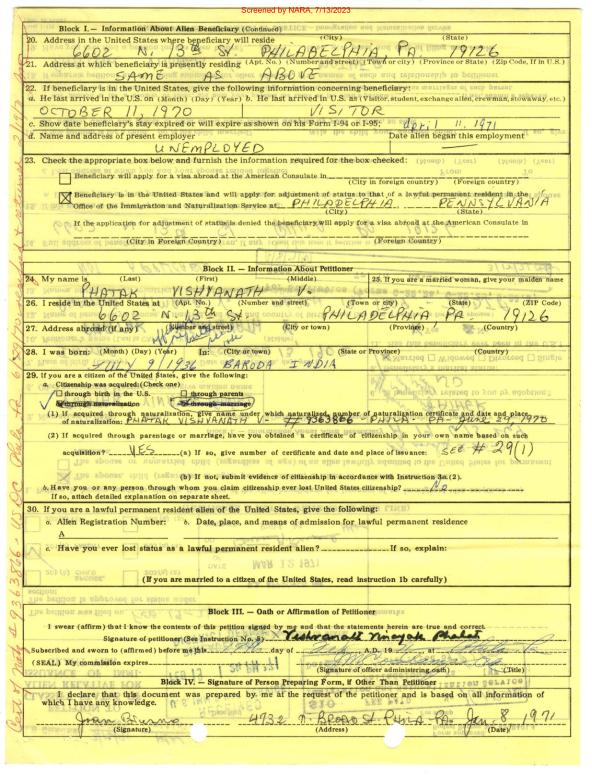 Screened by NARA, 7/13/2023
Block I.— Information About Alien Beneficiary (Continued)
20. Address in the United States where beneficiary will reside (City) (State)
6602 N. 13th St. PHILADELPHIA, PA. 19126
21. Address at which beneficiary is presently residing (Apt. No.) (Number and street) (Town or city) (Province or State) (Zip Code, if in U.S.)
SAME AS ABOVE
22. If beneficiary is in the United States, give the following information concerning beneficiary:
a. He last arrived in the U.S. on (Month) (Day) (Year) b. He last arrived in U.S. as (Visitor, student, exchange alien, crewman, stowaway, etc.)
OCTOBER 11, 1970 VISITOR
c. Show date beneficiary's stay expired or will expire as shown on his Form I-94 or I-95: April 11, 1971
d. Name and address of present employer Date alien began this employment
UNEMPLOYED
23. Check the appropriate box below and furnish the information required for the box checked:
Beneficiary will apply for a visa abroad at the American Consulate in
(City in foreign country) (Foreign country)
Beneficiary is in the United States and will apply for adjustment of status to that of a lawful permanent resident in the
Office of the Immigration and Naturalization Service at PHILADELPHIA PENNSYLVANIA
(City) (State)
If the application for adjustment of status is denied the beneficiary will apply for a visa abroad at the American Consulate in
(City in Foreign Country) (Foreign Country)
Block II. — Information About Petitioner
24. My name is (Last) (First) (Middle) 25. If you are a married woman, give your maiden name
PHATAK VISHVANATH V.
26. I reside in the United States at (Apt. No.) (Number and street) (Town or city) (State) (ZIP Code)
6602 N. 13th St. PHILADELPHIA PA. 19126
27. Address abroad (if any) (Number and street) (City or town) (Province) (Country)
28. I was born: (Month) (Day) (Year) In: (City or town) (State or Province) (Country)
JULY 9, 1936 BARODA INDIA
29. If you are a citizen of the United States, give the following:
a. Citizenship was acquired: (Check one)
through birth in the U.S. through parents
through naturalization through marriage
(1) If acquired through naturalization, give name under which naturalized, number of naturalization certificate and date and place
of naturalization: PHATAK VISHVANATH V- # 9363866 - PHILA - PA- June 29, 1970
(2) If acquired through parentage or marriage, have you obtained a certificate of citizenship in your own name based on such
acquisition? YES (a) If so, give number of certificate and date and place of issuance: SEE # 29(1)
(b) If not, submit evidence of citizenship in accordance with Instruction 3a(2).
b. Have you or any person through whom you claim citizenship ever lost United States citizenship? No
If so, attach detailed explanation on separate sheet.
30. If you are a lawful permanent resident alien of the United States, give the following:
a. Alien Registration Number: b. Date, place, and means of admission for lawful permanent residence
A
c. Have you ever lost status as a lawful permanent resident alien? If so, explain:
(If you are married to a citizen of the United States, read instruction 1b carefully)
Block III. — Oath or Affirmation of Petitioner
I swear (affirm) that I know the contents of this petition signed by me and that the statements herein are true and correct.
Signature of petitioner (See Instruction No. 5) Vishvanath Vinayak Phatak
Subscribed and sworn to (affirmed) before me this A.D. 19 at Phila Pa
(SEAL) My commission expires
(Signature of officer administering oath) (Title)
Block IV. — Signature of Person Preparing Form, if Other Than Petitioner
I declare that this document was prepared by me at the request of the petitioner and is based on all information of
which I have any knowledge.
4732 N. BROAD St. PHILA. PA. Jan. 8, 1971
(Signature) (Address) (Date)